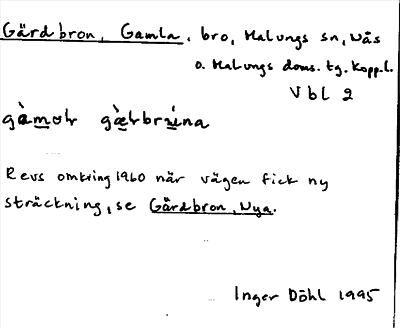 Gärdbron, Gamla, bro, Malungs sn, Nås
o. Malungs doms. tg. Kopp. l.
Vbl 2
Revs omkring 1960 när vägen fick ny
sträckning, se Gärdbron, Nya.
Inger Döhl 1995